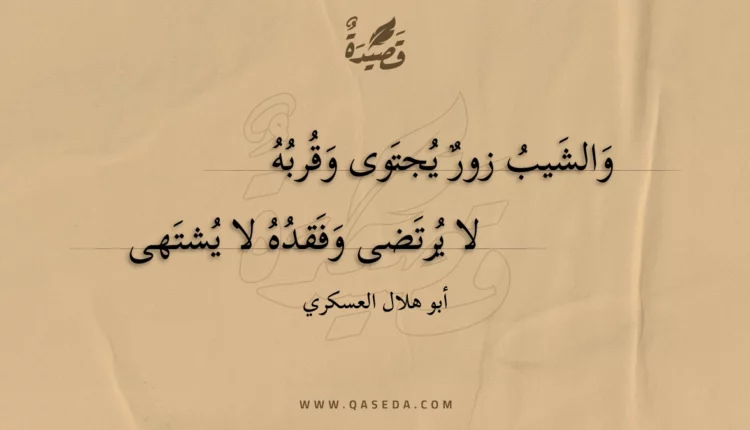 قَصِيدَةٌ
وَالشَيبُ زورٌ يُجتَوى وَقُربُهُ
لا يُرتَضى وَفَقدُهُ لا يُشتَهى
أبو هلال العسكري
WWW.QASEDA.COM